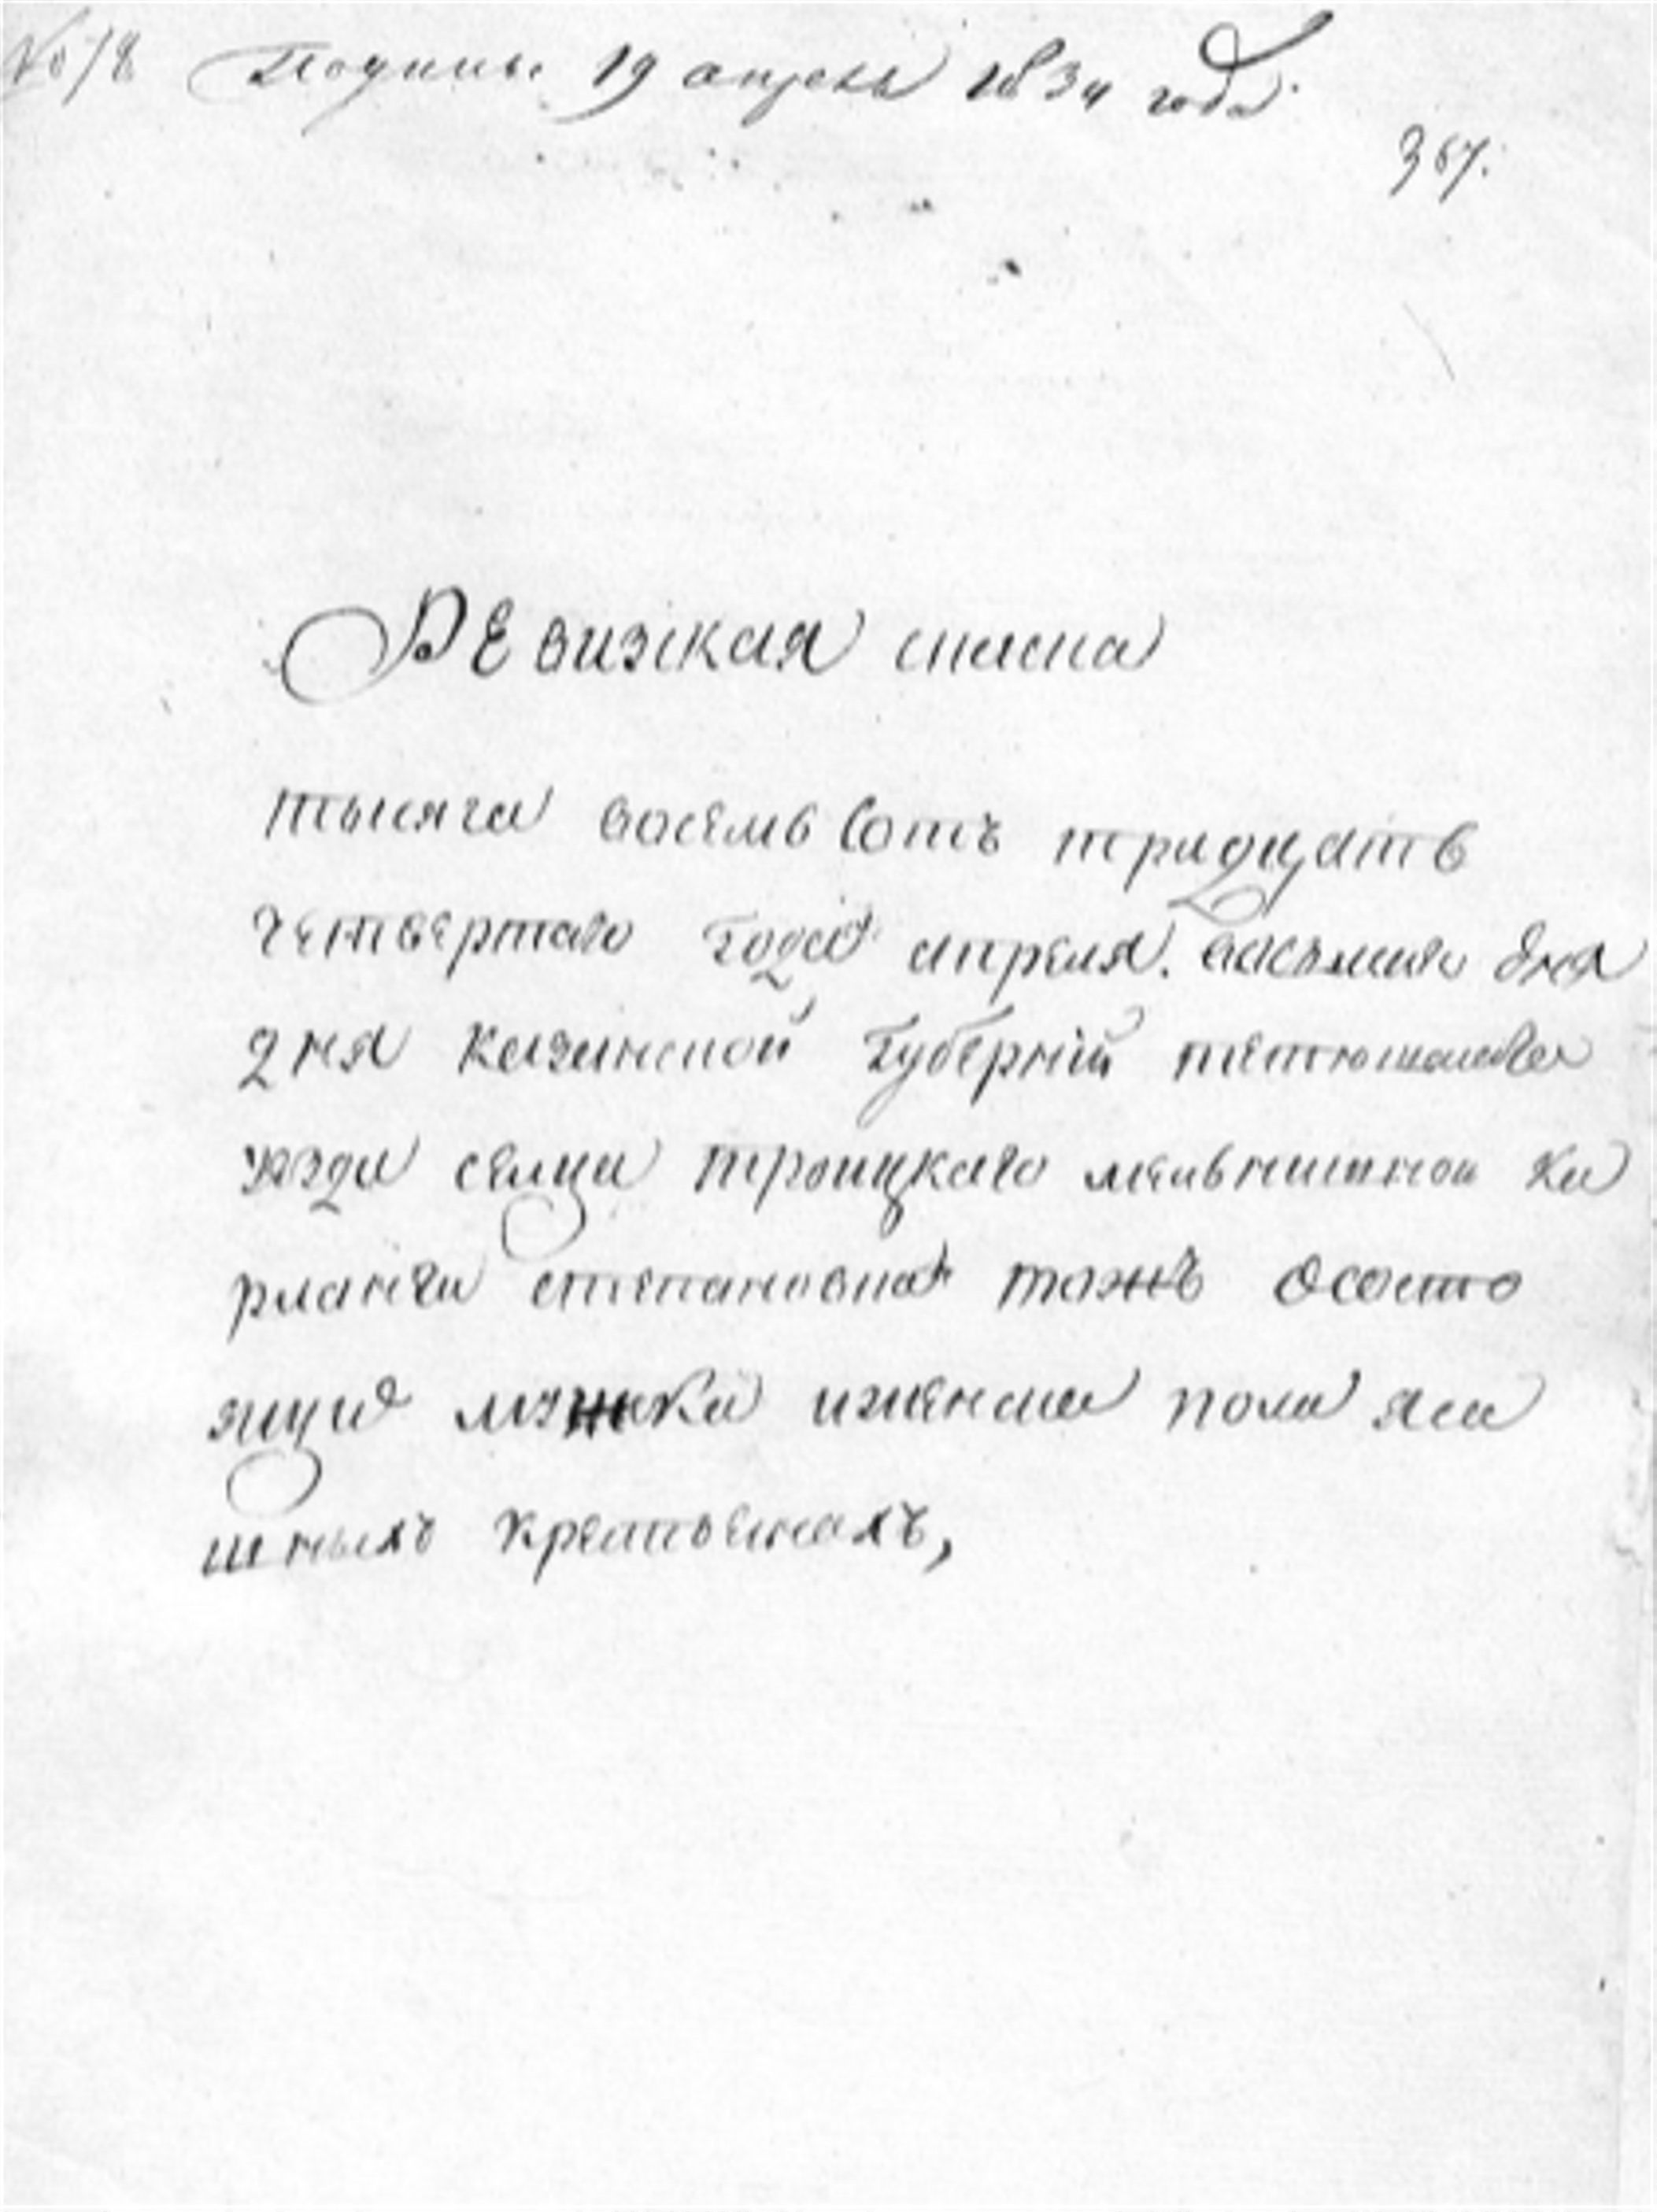 № 78 Подана 19 апреля 1834 года
367.
Ревизкая скаска
тысяча восемь сотъ тридцать
четвертаго года апреля. восьмаго дня
дня казанской губернїй тетюшскаго
уезда селца троицкаго мельнишной ка
рланги степановка тожъ ососто
ящие мужска иженска пола яса
шныхъ крестьянахъ,